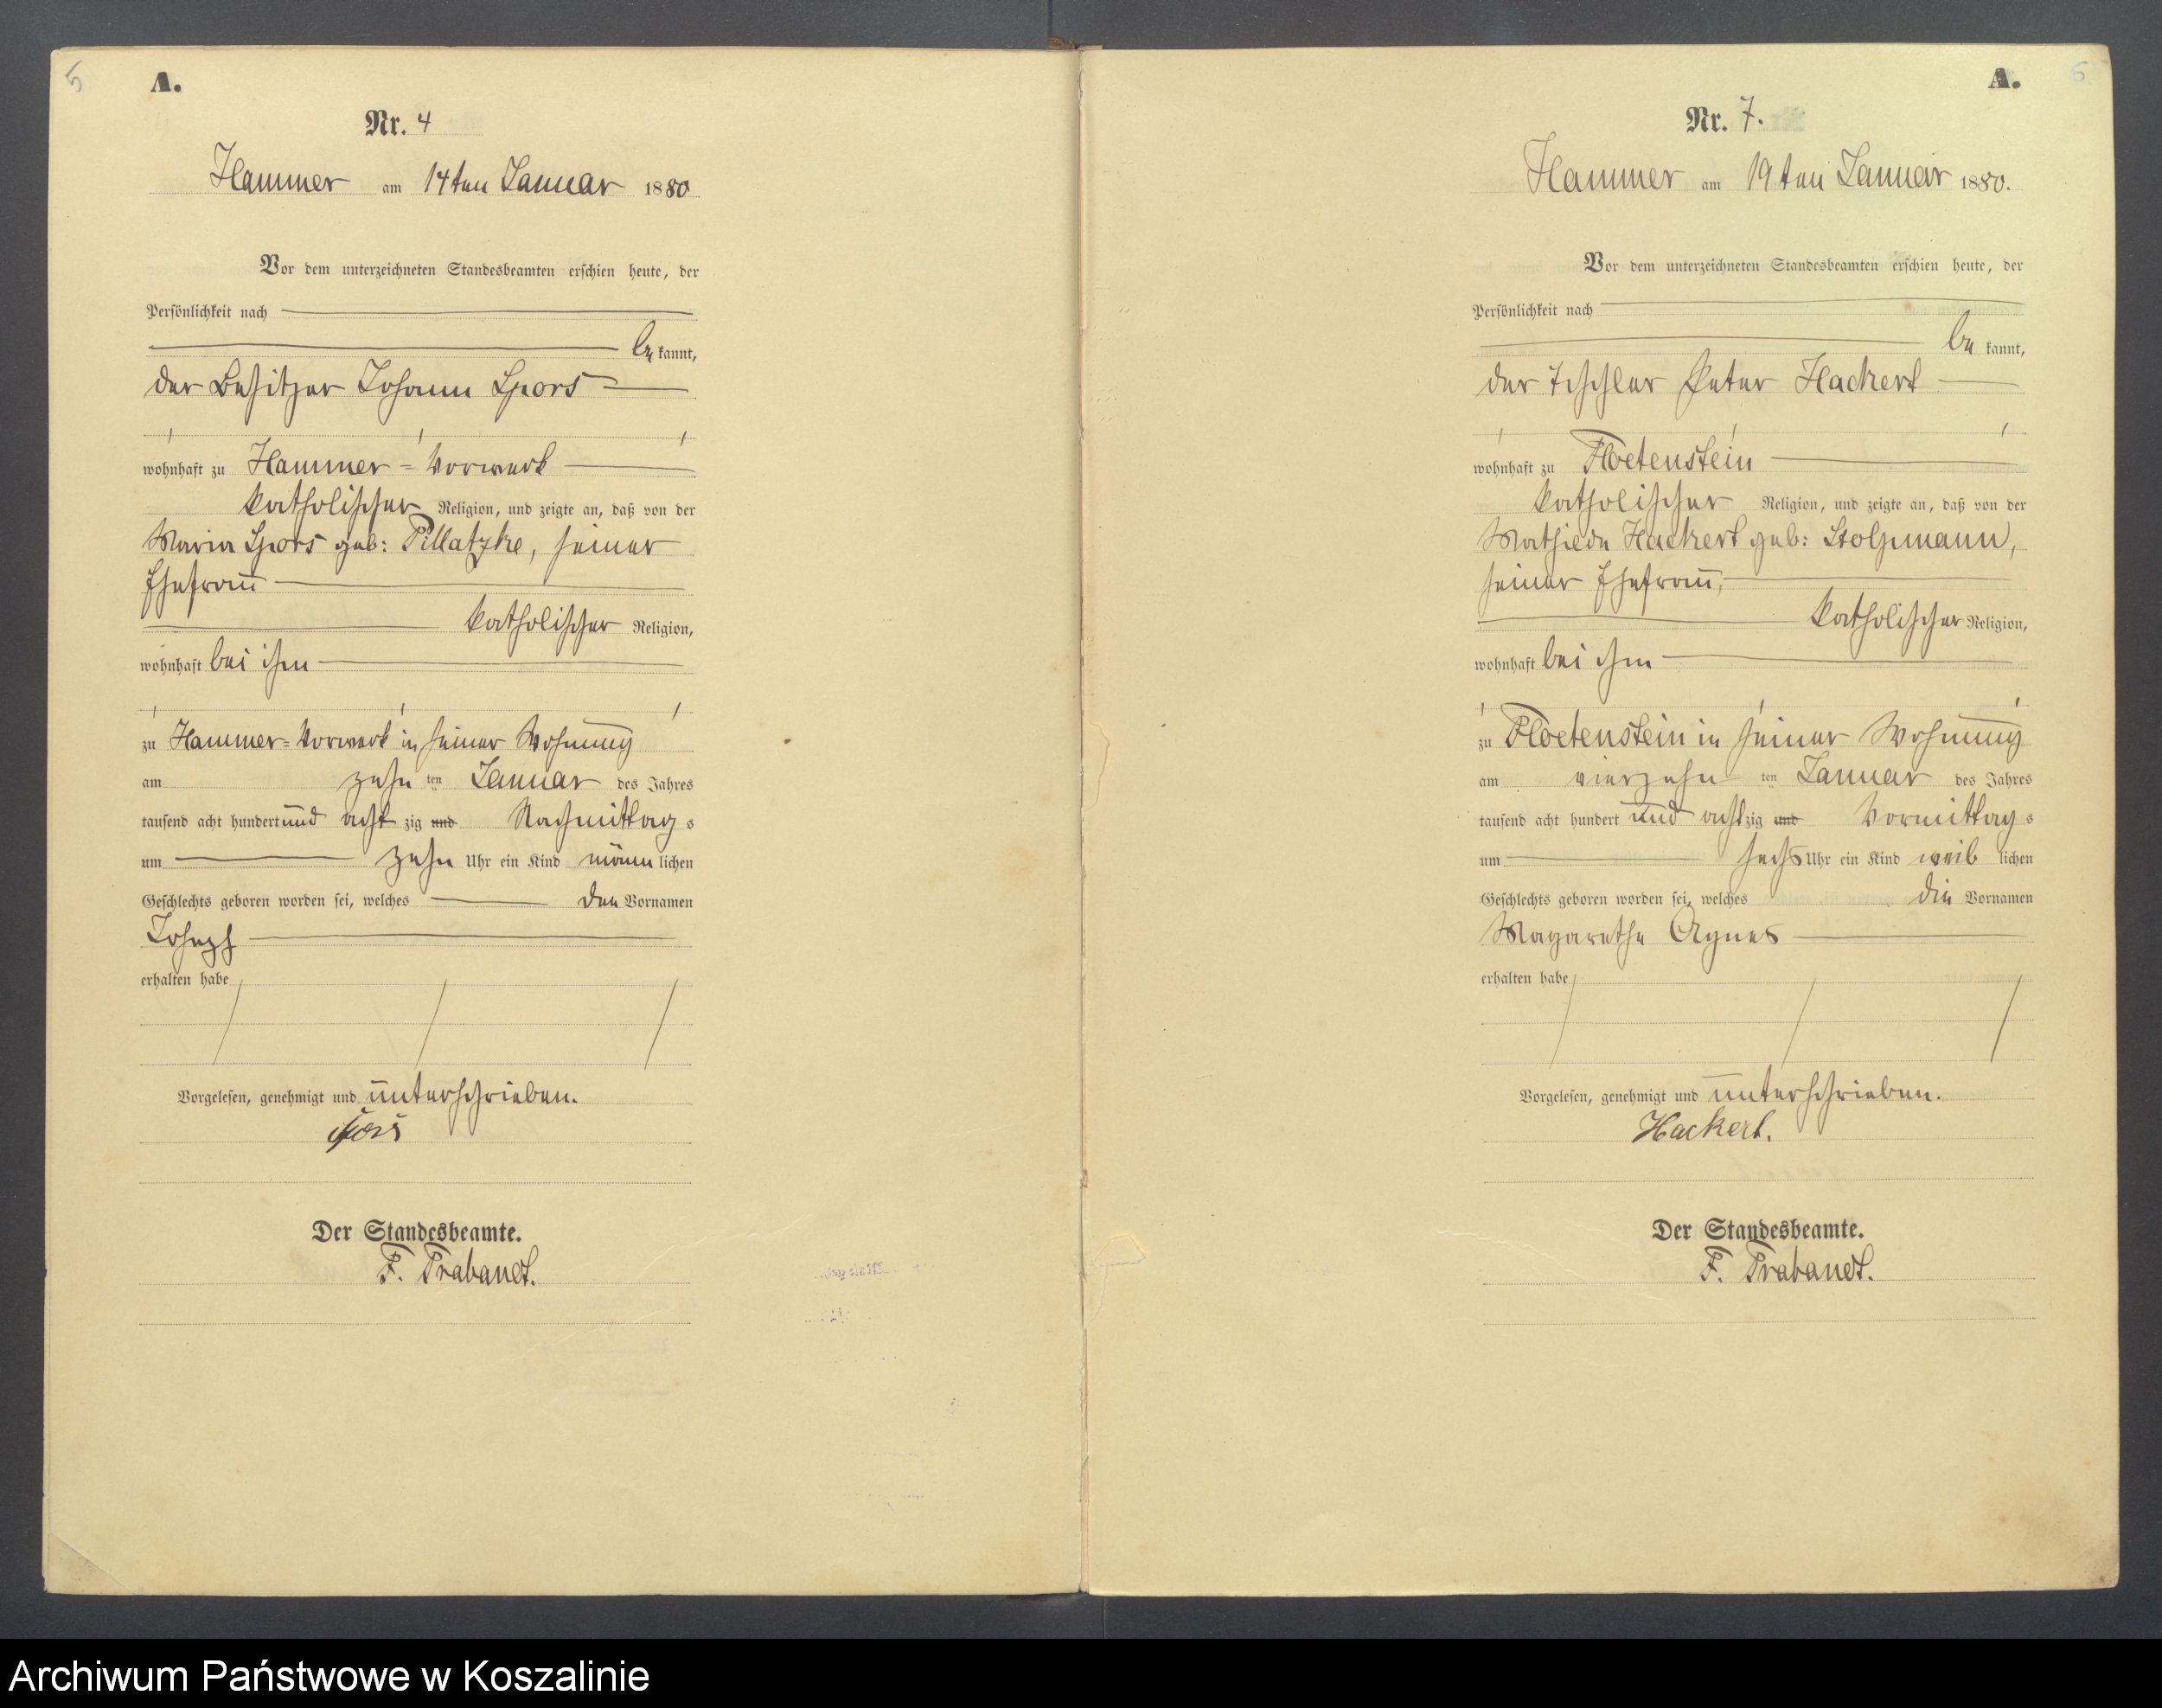 5
A.
Nr. 4
Hammer am 14ten Januar 1880
Vor dem unterzeichneten Standesbeamten erschien heute, der
Persönlichkeit nach
be kannt,
der Besitzer Johann Spors
wohnhaft zu Hammer=Vorwerk
katholischer Religion, und zeigte an, daß von der
Maria Spors geb: Pillatzke, seiner
Ehefrau
katholischer Religion,
wohnhaft bei ihm
zu Hammer=Vorwerk in seiner Wohnung
am zehn ten Januar des Jahres
tausend acht hundert und acht zig und Nachmittag s
um zehn Uhr ein Kind männ lichen
Geschlechts geboren worden sei, welches den Vornamen
Joseph
erhalten habe
Vorgelesen, genehmigt und unterschrieben.
Spors
Der Standesbeamte.
F. Trabandt.
6
A.
Nr. 7.
Hammer am 19ten Januar 1880.
Vor dem unterzeichneten Standesbeamten erschien heute, der
Persönlichkeit nach
be kannt,
der Tischler Peter Hackert
wohnhaft zu Floetenstein
katholischer Religion, und zeigte an, daß von der
Hackert geb: Stolpmann,
seiner Ehefrau,
katholischer Religion,
wohnhaft bei ihm
zu Floetenstein in seiner Wohnung
am vierzehn ten Januar des Jahres
tausend acht hundert und acht zig und Vormittag s
um sechs Uhr ein Kind weib lichen
Geschlechts geboren worden sei, welches die Vornamen
Magarethe Agnes
erhalten habe
Vorgelesen, genehmigt und unterschrieben.
Hackert.
Der Standesbeamte.
F. Trabandt.
Archiwum Państwowe w Koszalinie